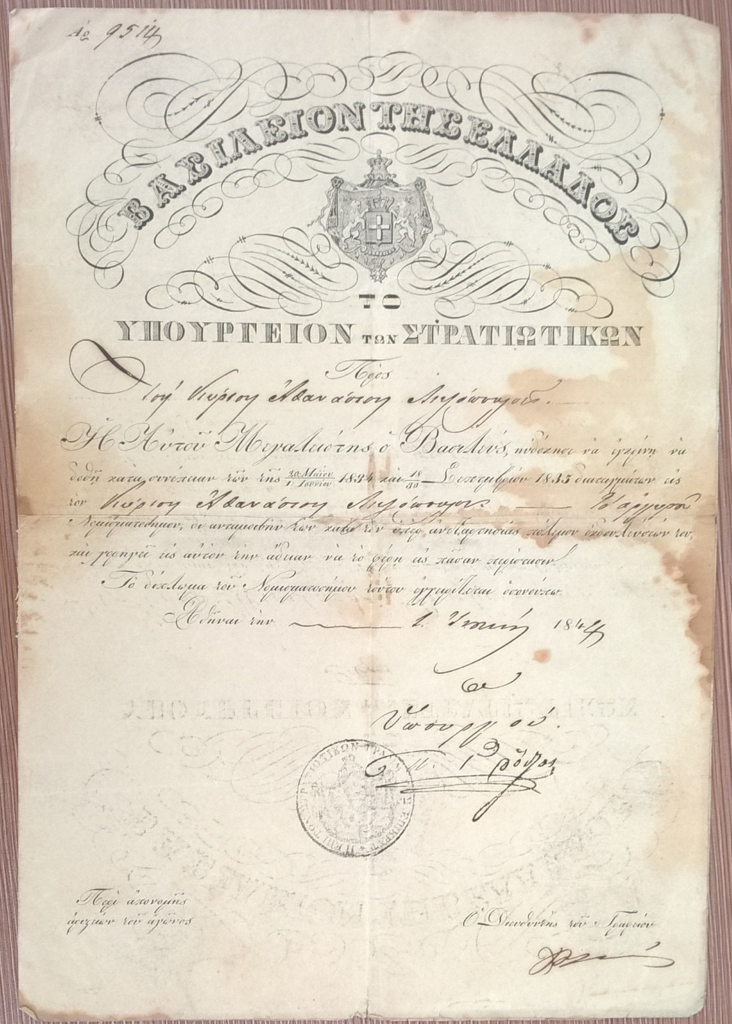 9514
ΒΑΣΙΛΕΙΟΝ ΤΗΣ ΕΛΛΑΔΟΣ
ΤΟ
ΥΠΟΥΡΓΕΙΟΝ ΤΩΝ ΣΤΡΑΤΙΩΤΙΚΩΝ
Πρὸς
τὸν Κύριον Ἀθανάσιον
Ἡ Αὐτοῦ Μεγαλειότης ὁ Βασιλεὺς, ηὐδόκησε νὰ ἐγκρίνῃ νὰ
δοθῇ κατὰ συνέπειαν τῶν τῆς 20 Μαΐου / 1 Ἰουνίου 1834 καὶ 18 / 30 Σεπτεμβρίου 1835 διαταγμάτων εἰς
τὸν Κύριον Ἀθανάσιον — Τὸ ἀργυροῦν
Νομισματόσημον, εἰς ἀνταμοιβὴν τῶν κατὰ τὸν ὑπὲρ ἀνεξαρτησίας πόλεμον ἐκδουλεύσεών του,
καὶ χορηγεῖ εἰς αὐτὸν τὴν ἄδειαν νὰ τὸ φέρῃ εἰς πᾶσαν περίστασιν.
Τὸ δίπλωμα τοῦ Νομισματοσήμου τούτου ἐγχειρίζεται
Ἀθῆναι τὴν — 1 1844
Ὁ
Ὑπουργός
Περὶ ἀπονομῆς
ἀριστείων τοῦ ἀγῶνος
Ὁ Διευθυντὴς τοῦ Γραφείου